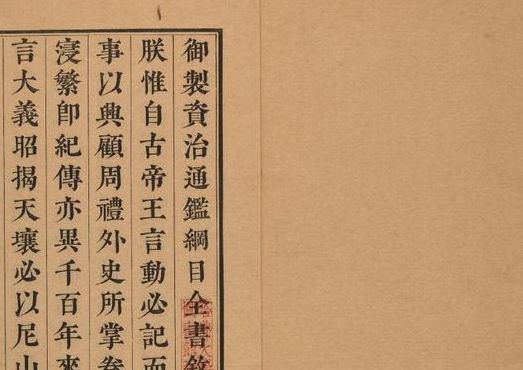 御製資治通鑑綱目全書敘
朕惟自古帝王言動必記而
事以興顧周禮外史所掌卷
寖繁卽紀傳亦異千百年來
言大義昭揭天壤必以尼山